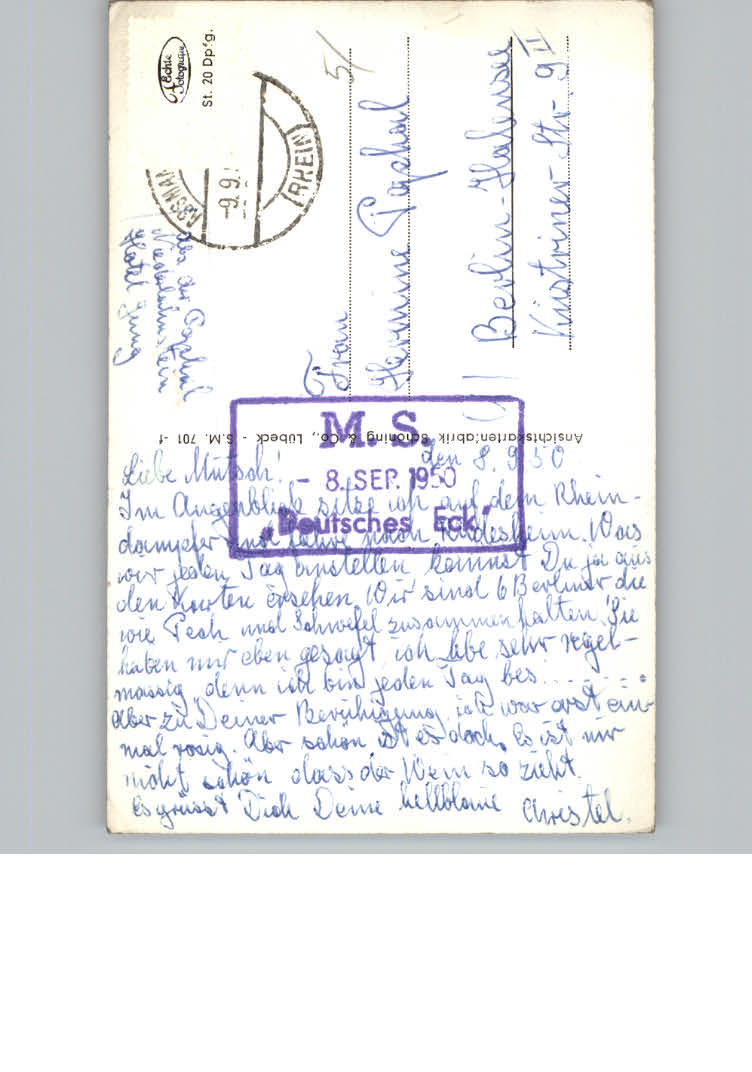 Echte
Fotografie
St. 20 Dpfg.
ASSMAN
-9.9.
(RHEIN)
5/
Abs. Chr. Paschal
Niederlahnstein
Hotel Jung
Frau
Hermine Paschal
Berlin-Halensee
Küstriner Str. 9 II
Ansichtskartenfabrik Schöning & Co., Lübeck - S.M. 701
M.S.
- 8. SEP. 1950
„Deutsches Eck"
Liebe Mutsch! den 8.9.50
Im Augenblick sitze ich auf dem Rhein-
dampfer und fahre nach Rüdesheim. Was
wir jeden Tag anstellen kannst Du ja aus
den Karten ersehen. Wir sind 6 Berliner die
wie Pech und Schwefel zusammenhalten. Sie
haben mir eben gesagt ich lebe sehr regel-
mässig, denn ich bin jeden Tag bes......
Aber zu Deiner Beruhigung, ich war erst ein-
mal rosig. Aber schön ist es doch. Es ist nur
nicht schön dass der Wein so zieht.
Es grüsst Dich Deine hellblaue Christel.